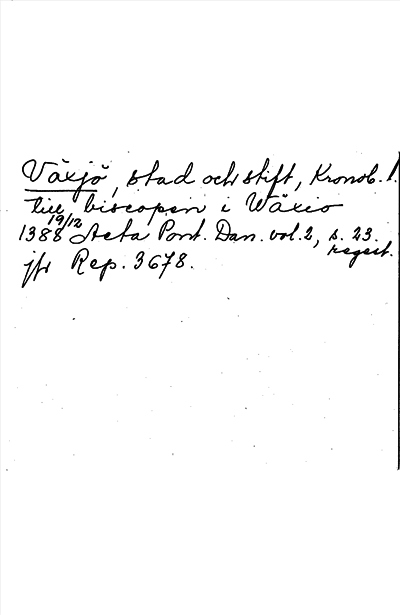 Växjö, stad och stift, Kronob. l.
till biscopen i Wäxio
1388 19/12 Acta Pont. Dan. vol. 2, s. 23.
regest.
jfr Rep. 3678.